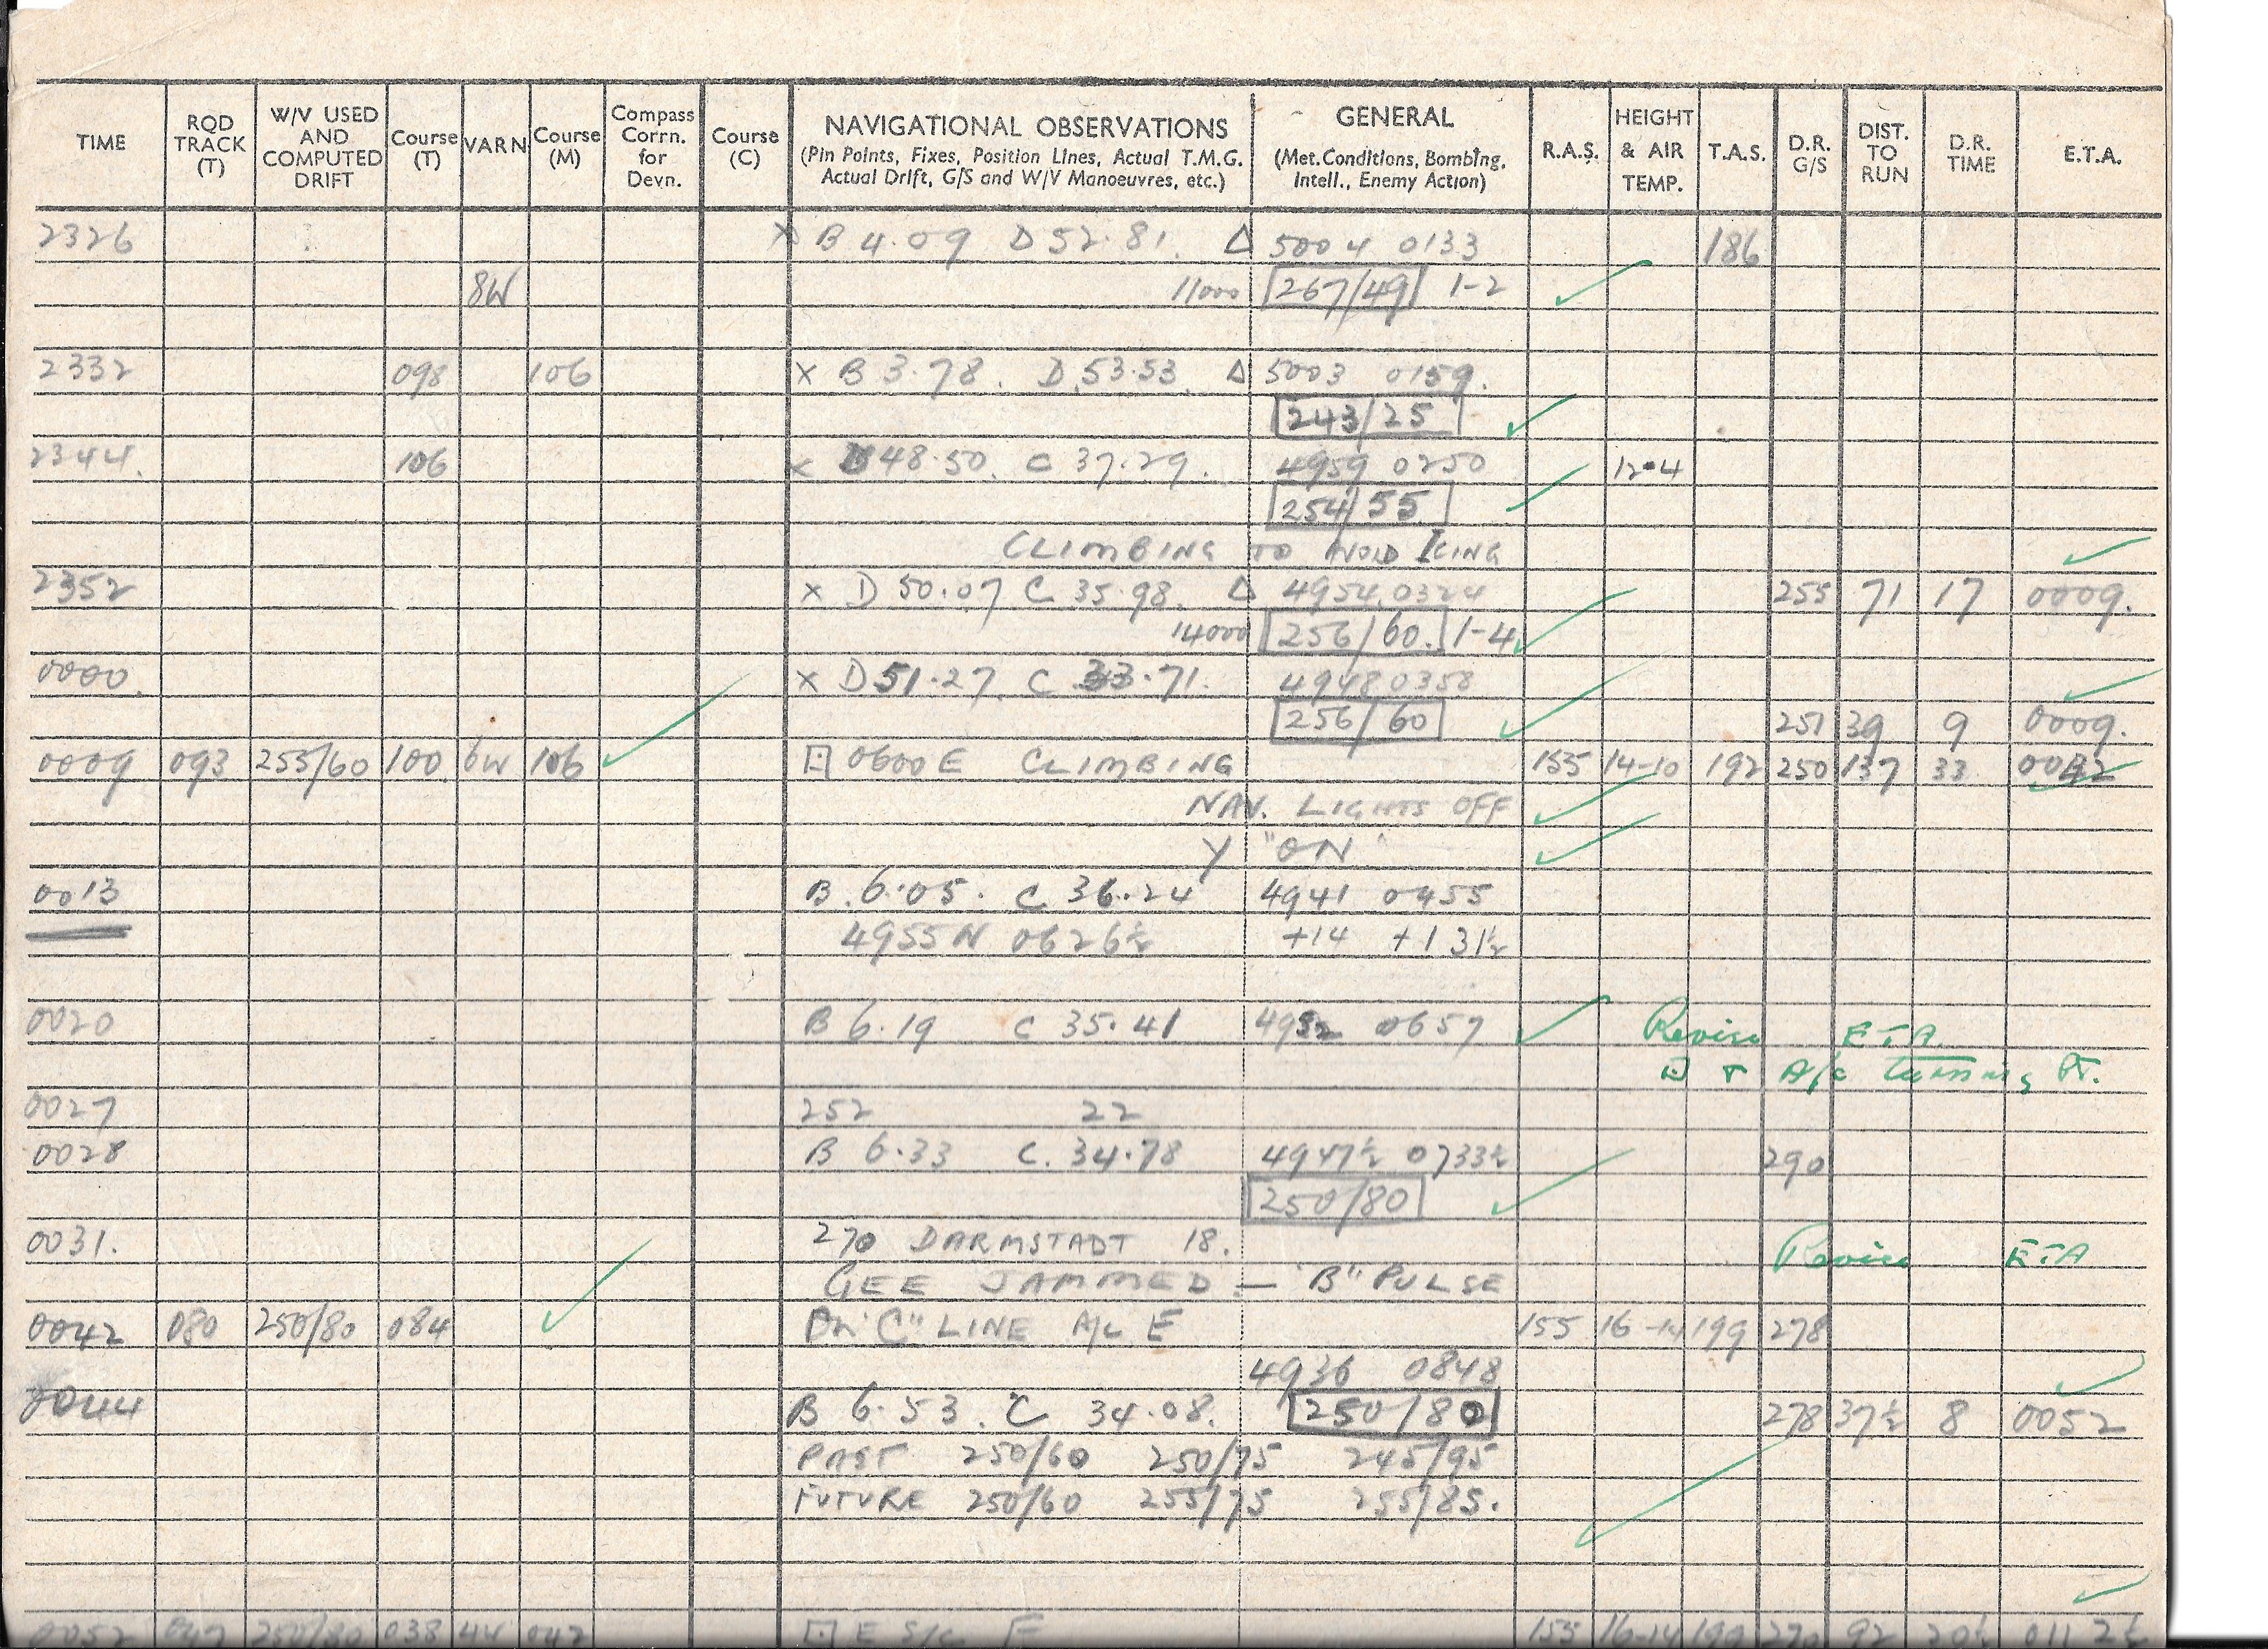 TIME RQD TRACK (T) W/V USED AND COMPUTED DRIFT Course (T) VARN Course (M) Compass Corrn. for Devn. Course (C) NAVIGATIONAL OBSERVATIONS (Pin Points, Fixes, Position Lines, Actual T.M.G. Actual Drift, G/S and W/V Manoeuvres, etc.) GENERAL (Met.Conditions, Bombing, Intell., Enemy Action) R.A.S. HEIGHT & AIR TEMP. T.A.S. D.R. G/S DIST. TO RUN D.R. TIME E.T.A.
2326 X B 4.09 D 52.81. Δ 5004 0133 186
8W 11000 267/49 1-2
2332 098 106 X B 3.78. D 53.53. Δ 5003 0159.
243/25
2344. 106 X D 48.50. C 37.29. 4959 0250 12-4
254/55
CLIMBING TO AVOID ICING
2352 X D 50.07 C 35.98. Δ 4954 0324 255 71 17 0009.
14000 256/60. 1-4
0000. X D 51.27. C 33.71. 4948 0358
256/60 251 39 9 0009.
0009 093 255/60 100 6W 106 ⊡ 0600E CLIMBING 155 14-10 192 250 137 33 0042
NAV. LIGHTS OFF
Y "ON"
0013 B. 6.05. C 36.24 4941 0455
4955N 0626½ +14 +1 31½
0020 B 6.19 C 35.41 4952 0657 Revise ETA
⊡ + A/c turning PT.
0027 252 22
0028 B 6.33 C. 34.78 4947½ 0733½ 290
250/80
0031. 270 DARMSTADT 18. Revise ETA
GEE JAMMED - "B" PULSE
0042 080 250/80 084 ON "C" LINE A/C E 155 16-14 199 278
4936 0848
0044 B 6.53. C 34.08. 250/80 278 37½ 8 0052
PAST 250/60 250/75 245/95
FUTURE 250/60 255/75 255/85.
0052 047 250/80 038 4W 042 ⊡ E S/C F 155 16-14 199 270 92 20½ 0112½